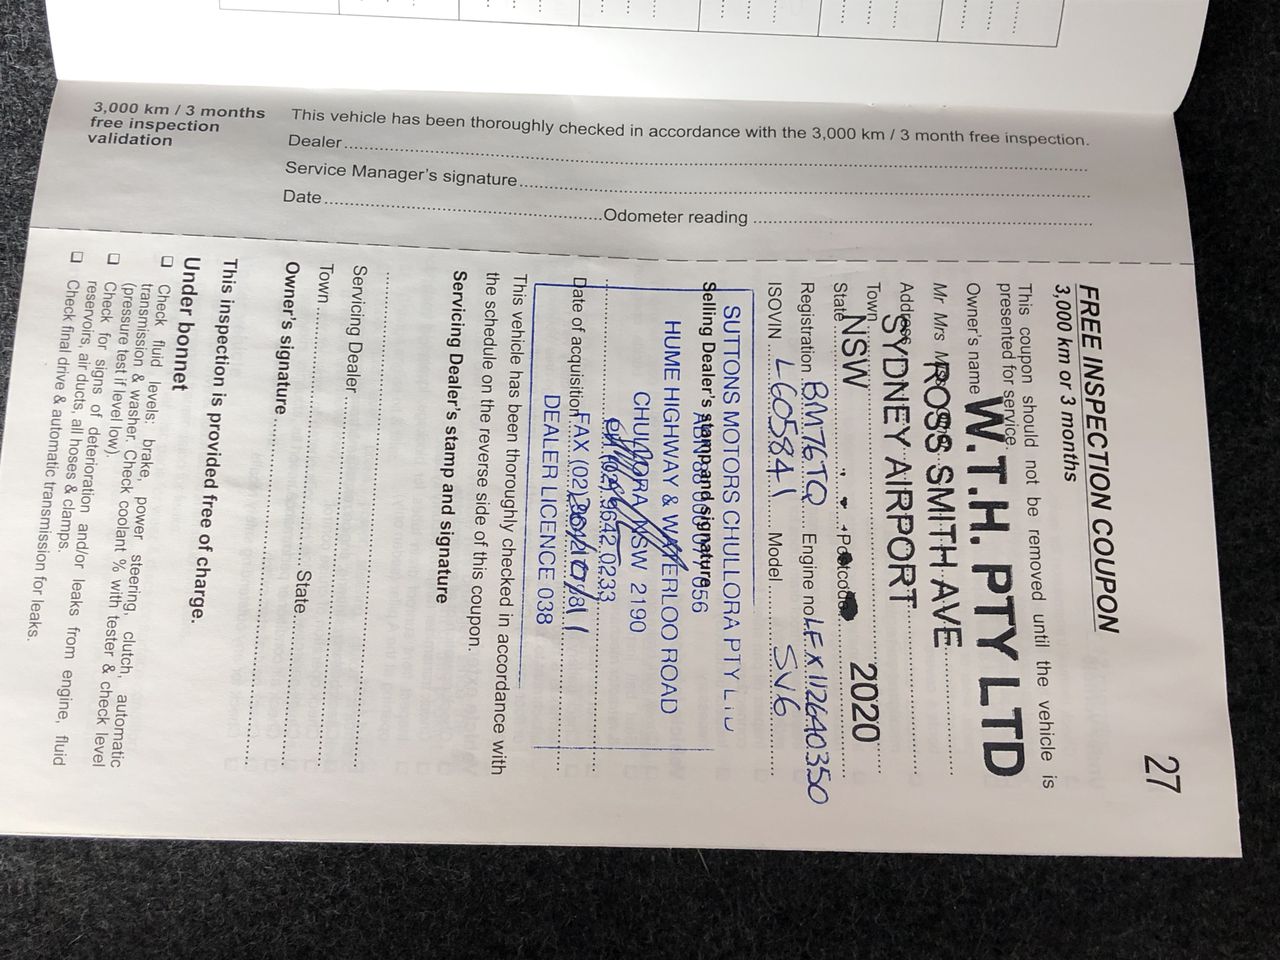 3,000 km / 3 months
free inspection
validation
This vehicle has been thoroughly checked in accordance with the 3,000 km / 3 month free inspection.
Dealer
Service Manager's signature
Date Odometer reading
27
FREE INSPECTION COUPON
3,000 km or 3 months
This coupon should not be removed until the vehicle is
presented for service.
Owner's name W.T.H. PTY LTD
Mr Mrs ROSS SMITH AVE
Address SYDNEY AIRPORT
Town
State NSW Postcode 2020
Registration BM76TQ Engine no LFX112640350
ISOVIN L605841 Model SV6
SUTTONS MOTORS CHULLORA PTY LTD
Selling Dealer's stamp and signature
ABN 88 000 056
HUME HIGHWAY & WATERLOO ROAD
CHULLORA NSW 2190
PH (02) 9642 0233
Date of acquisition
FAX (02)
DEALER LICENCE 038
This vehicle has been thoroughly checked in accordance with
the schedule on the reverse side of this coupon.
Servicing Dealer's stamp and signature
Servicing Dealer
Town State
Owner's signature
This inspection is provided free of charge.
Under bonnet
Check fluid levels: brake, power steering, clutch, automatic
transmission & washer. Check coolant % with tester & check level
(pressure test if level low).
Check for signs of deterioration and/or leaks from engine, fluid
reservoirs, air ducts, all hoses & clamps.
Check final drive & automatic transmission for leaks.